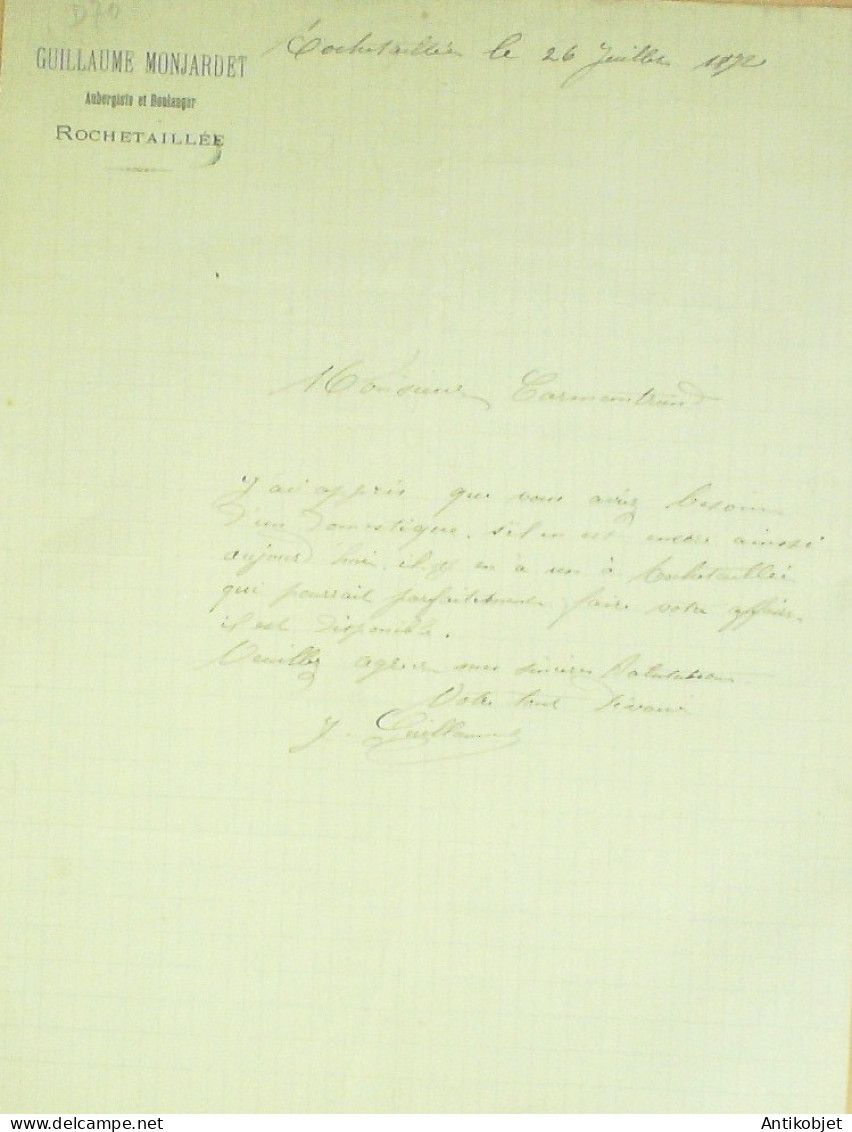 D70
GUILLAUME MONJARDET
Aubergiste et Boulanger
ROCHETAILLÉE
Rochetaillée le 26 Juillet 1872
Monsieur Carmentrand
J'ai appris que vous avéz besoin
d'un domestique. s'il en est encore ainssi
aujourd'hui, il y en à un à Rochetaillée
qui pourrait parfaitement faire votre affaire.
il est disponible.
Veuilléz agréer mes sincères Salutations
Votre tout dévoué
J. Guillaume
Antikobjet